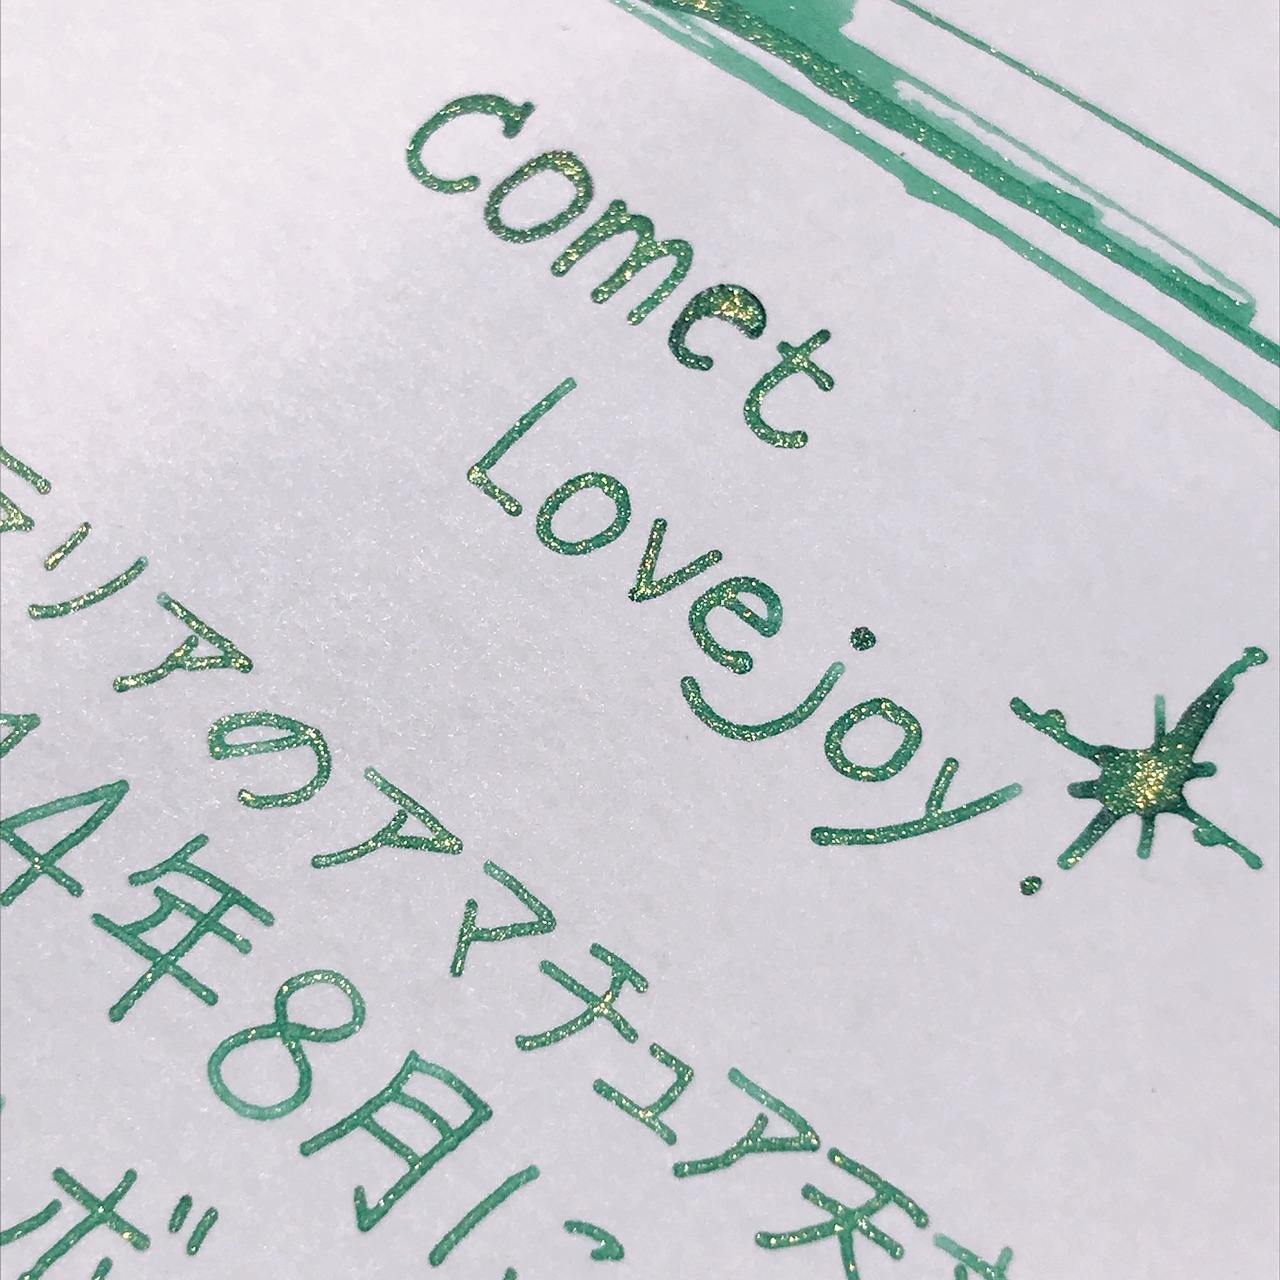 comet
Lovejoy
ラリアのアマチュア天
4年8月に
ボ